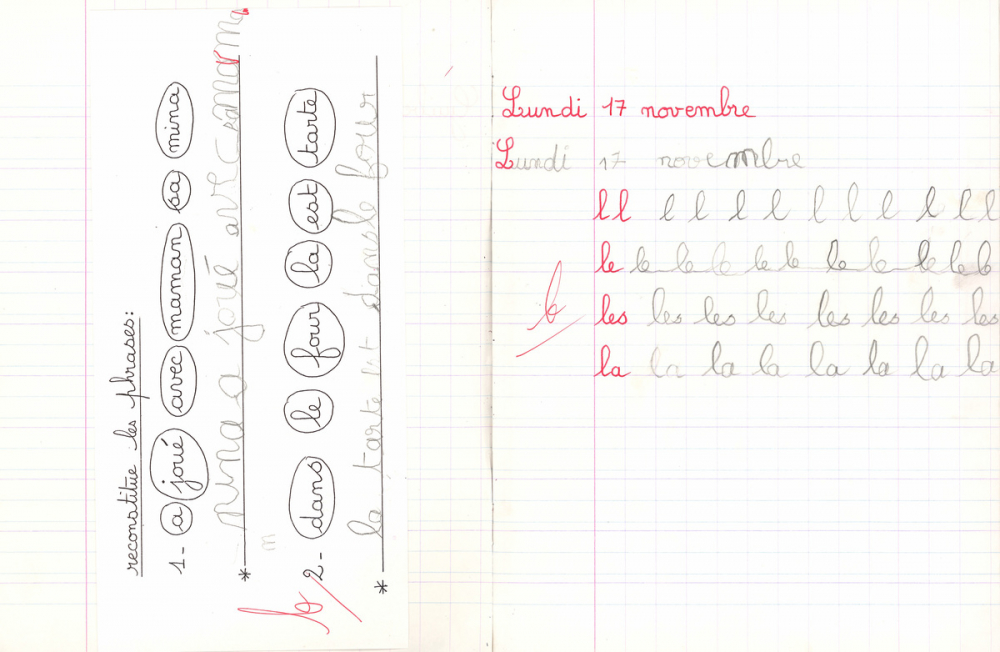 reconstitue les phrases:
1- a joué avec maman sa mina
* mina a joué avec sa mam
m
2- dans le four la est tarte
* la tarte est dans le four
b
Lundi 17 novembre
Lundi 17 novembre
l l l l l l l l l l l l
le le le le le le le le le le le
b
les les les les les les les les
la la la la la la la la